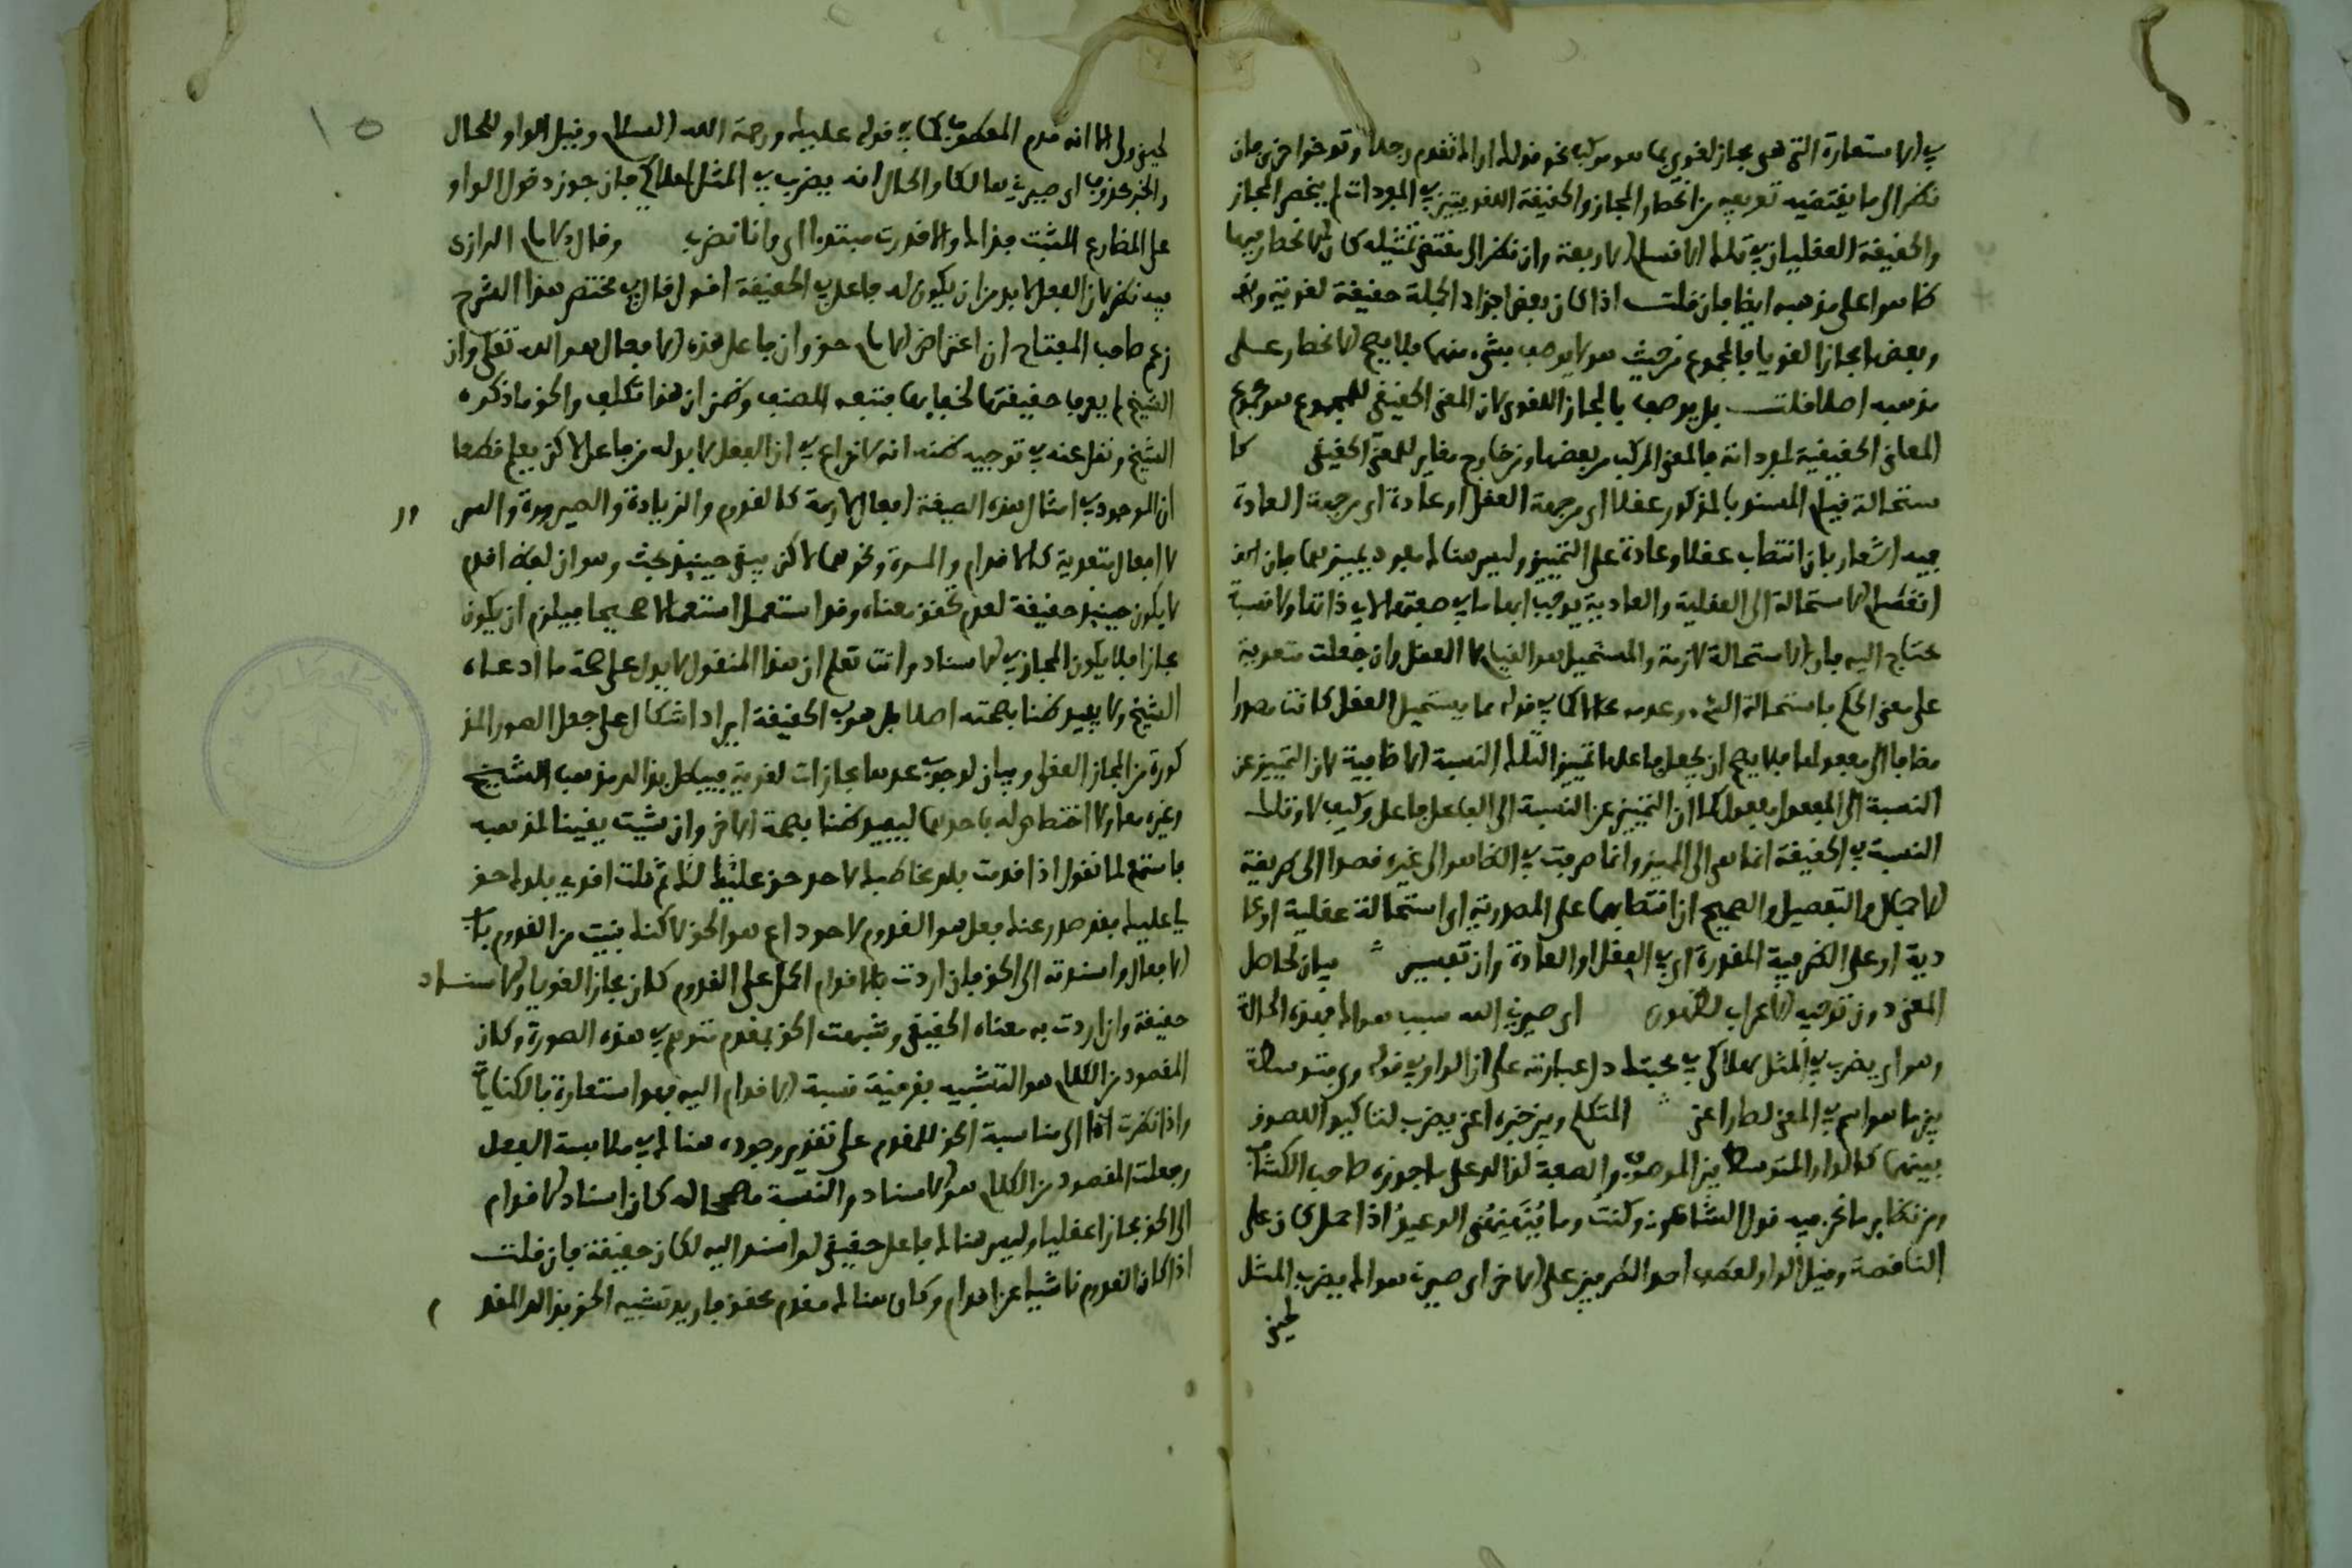 في الاستعارة التي هي مجاز لغوي بما هو مركب نحو قولك اراك تقدم رجلا وتوخر اخرى فان
نظر الى ما يقتضيه تعريفه من انحصار المجاز والحقيقة اللغويتين في المفردات لم ينحصر المجاز
والحقيقة العقليان في تلك الاقسام الاربعة وان نظر الى مقتضى تمثيله كان الانحصار فيها
ظاهرا على مذهبه ايضا فان قلت اذا كان بعض اجزاء الجملة حقيقة لغوية
وبعضها مجازا لغويا فالمجموع من حيث هو لا يوصف بشيء منهما فلا يصح الانحصار على
مذهبه اصلا قلت بل يوصف بالمجاز اللغوي لان المعنى الحقيقي للمجموع هو مجموع
المعاني الحقيقية لمفرداته فالمعنى المركب من بعضها ومن خارج مغاير للمعنى الحقيقي كا
ستحالة قيام المسند بالمذكور عقلا اي من جهة العقل او عادة اي من جهة العادة
فيه اشعار بان انتصاب عقلا وعادة على التمييز وليس هناك مفرد يميز بهما فان
انقسام الاستحالة الى العقلية والعادية يوجب ابهاما في صفتها لا في ذاتها ولا نسبة
محتاج اليه فان الاستحالة لازمة والمستحيل هو القيام لا العقل وان جعلت متعدية
على معنى الحكم باستحالة الشيء وعده محالا كما في قوله مما يستحيل العقل كانت مصدرا
مضافا الى مفعولها فلا يصح ان يجعل فاعلها تمييزا لتلك النسبة الاضافية لان التمييز عن
النسبة الى المفعول مفعول كما ان التمييز عن النسبة الى الفاعل فاعل وكيف لا وتلك
النسبة في الحقيقة انما هي الى المميز وانما صرفت في الظاهر الى غيره قصدا الى طريقة
الاجمال والتفصيل والصحيح ان انتصابهما على المصدرية اي استحالة عقلية او عا
دية او على الظرفية المقدرة اي في العقل او العادة وان تفسير بيان لحاصل
المعنى دون توجيه الاعراب لظهوره اي صيرني الله بسبب هواك بهذه الحالة
وهو ان يضرب المثل بهلاكي في محبتك دل عبارته على ان الواو في قوله وبي متوسطة
بين ما هو اسم في المعنى لصار اعني المتكلم وبين خبره اعني يضرب لتاكيد اللصوق
بينهما كالواو المتوسطة بين الموصوف والصفة لذلك على ما جوزه صاحب الكشاف
ومن نظاير ما نحن فيه قول الشاعر وكنت وما ينهنهني الوعيد اذا حمل كان على
الناقصة وقيل الواو لعطف احد الظرفين على الاخر اي صيرني هواك يضرب المثل
لحيني
لحيني وبي الا انه قدم المعطوف كما في قوله عليك ورحمة الله السلام وقيل الواو للحال
والخبر محذوف اي صيرني هالكا والحال انه يضرب بي المثل لهلاكي فان جوز دخول الواو
على المضارع المثبت فذاك والا قدرت مبتدا اي وانا يضرب وقال الامام الرازي
فيه نظر لان الفعل لا بد من ان يكون له فاعل في الحقيقة اقول قال في مختصر هذا الشرح
زعم صاحب المفتاح ان اعتراض الامام حق وان فاعل هذه الافعال هو الله تعالى وان
الشيخ لم يعرف حقيقتها لخفائها فتبعه المصنف وظني ان هذا تكلف والحق ما ذكره
الشيخ ونقل عنه في توجيه ظنه انه لا نزاع في ان الفعل لا بد له من فاعل لاكن يعلم قطعا
ان الموجود في امثال هذه الصيغة افعال لازمة كالقدوم والزيادة والصيرورة والسرور
لا افعال متعدية كالاقدام والمسرة ونحوهما لاكن يبقى حينئذ بحث وهو ان لفظ اقدم
لا يكون حينئذ حقيقة لعدم تحقق معناه وقد استعمل استعمالا صحيحا فيلزم ان يكون
مجازا فلا يكون المجاز في الاسناد وانت تعلم ان هذا المنقول لا يدل على صحة ما ادعاه
الشيخ ولا يفيد ظنا بصحته اصلا بل هو في الحقيقة ايراد اشكال على جعل الصور المذ
كورة من المجاز العقلي وبيان لوجوب عدها مجازات لغوية فيبطل بذلك مذهب الشيخ
وغيره معا ولا اختصاص له باحدهما ليفيد ظنا بصحة الاخر وان شيت يقينا لمذهبه
فاستمع لما نقول اذا قدمت بلد مخاطبك لاجل حق عليك لك ثم قلت اقدمني بلدك حق
لي عليك فقد صدر عنك فعل هو القدوم لاجل داع هو الحق لاكنك بنيت من القدوم باب
الافعال واسندته الى الحق فان اردت بالاقدام الحمل على القدوم كان مجازا لغويا والاسناد
حقيقة وان اردت به معناه الحقيقي وشبهت الحق بمقدم متوهم في هذه الصورة وكان
المقصود من الكلام هو التشبيه بقرينة نسبة الاقدام اليه فهو استعارة بالكناية
واذا نظرت الى مناسبة الحق للمقدم على تقدير وجوده هناك في ملابسة الفعل
وجعلت المقصود من الكلام هو الاسناد والنسبة مصححا له كان اسناد الاقدام
الى الحق مجازا عقليا وليس هناك فاعل حقيقي لو اسند اليه لكان حقيقة فان قلت
اذا كان القدوم ناشيا عن اقدام وكان هناك مقدم محقق فاريد تشبيه الحق بذلك المقدم
١٥